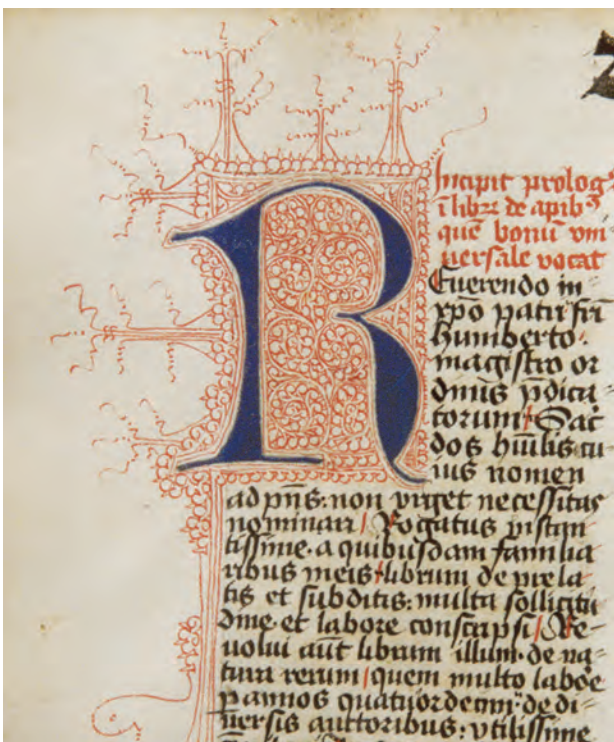 Incipit prologꝰ
ī libꝝ de apibꝰ
quē bonū vni
uersale vocat
REuerendo in
xpo patri fr̄i
humberto.
magistro or
dinis p̄dica
torum Sac̄
dos hūilis cu
ius nomen
ad p̄ns. non vrget necessitas
nominari Rogatus instan
tissime. a quibusdam familia
ribus meis librum de prela
tis et subditis: multa sollicitu
dine et labore conscripsi Re
uolui aūt librum illum. de na
tura rerum quem multo laboe
p annos quatuordecim. de di
uersis auctoribus: vtilissime